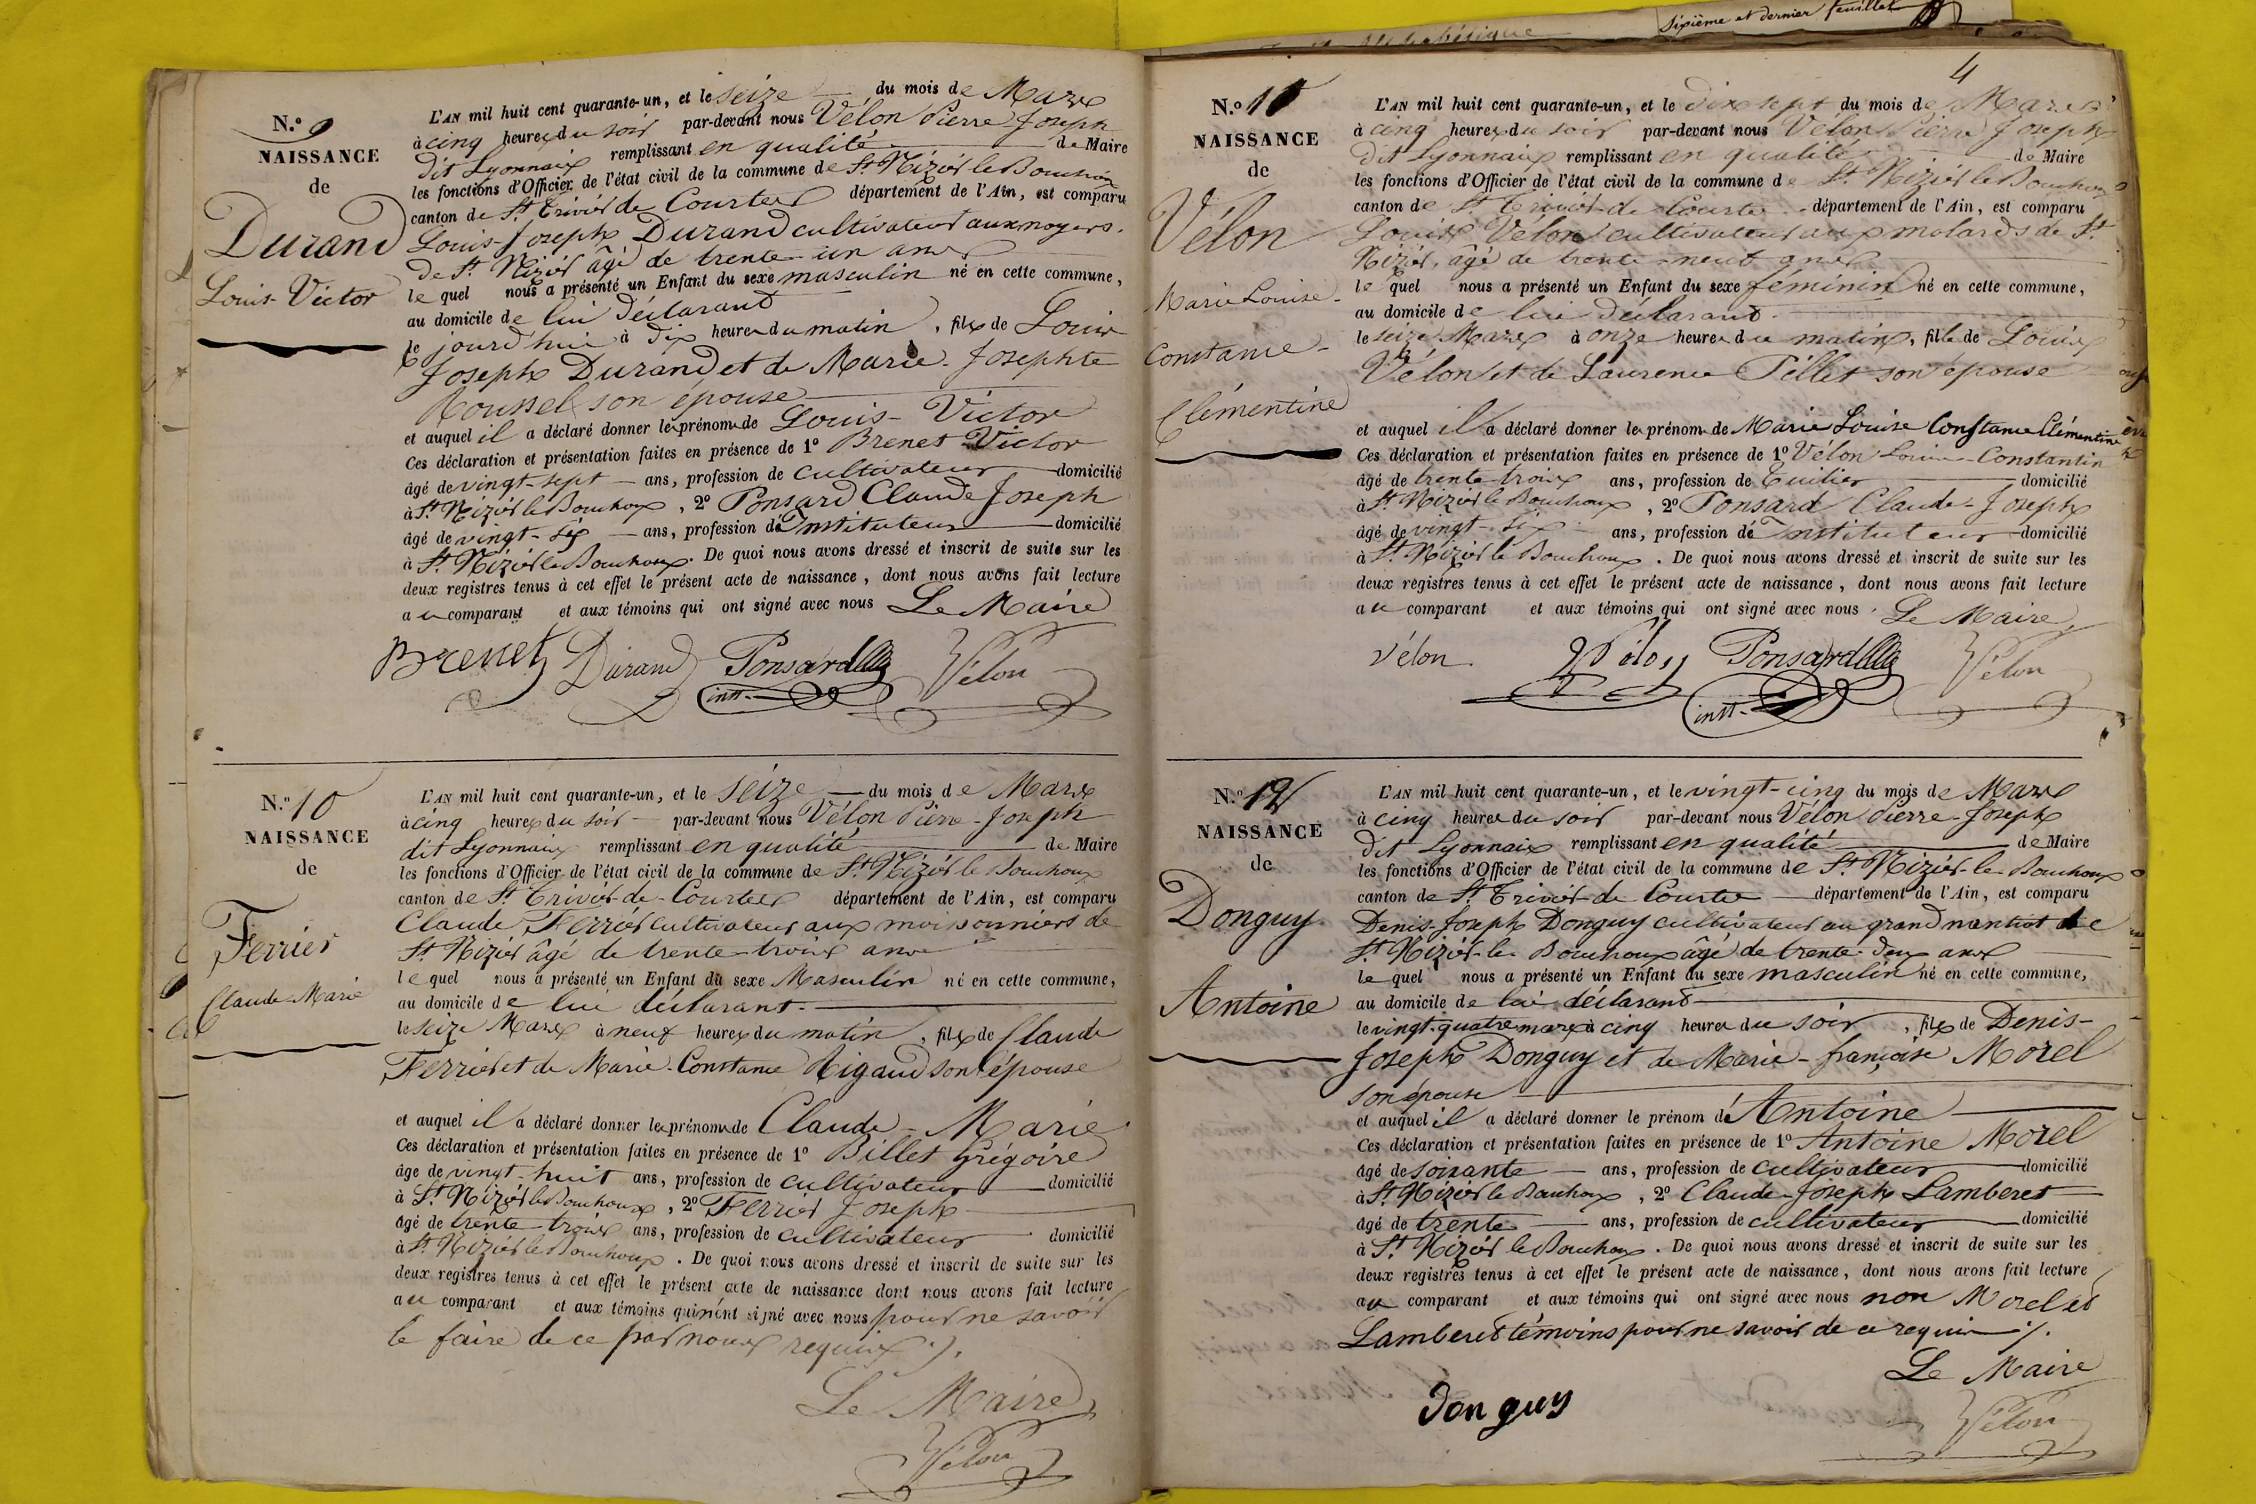 Sixième et dernier feuillet
N.º 9
NAISSANCE
de
Durand
Louis-Victor
L'AN mil huit cent quarante-un, et le seize du mois de Mars
à cinq heures du soir par-devant nous Vélon Pierre Joseph
dit Lyonnais remplissant en qualité de Maire
les fonctions d'Officier de l'état civil de la commune de St. Nizier le Bouchoux
canton de St. Trivier de Courtes département de l'Ain, est comparu
Louis-Joseph Durand cultivateur aux noyers.
de St. Nizier âgé de trente-un ans
lequel nous a présenté un Enfant du sexe masculin né en cette commune,
au domicile de lui déclarant
le jourd'hui à dix heures du matin, fils de Louis
Joseph Durand et de Marie-Josephte
Roussel son épouse
et auquel il a déclaré donner les prénoms de Louis-Victor
Ces déclaration et présentation faites en présence de 1º Brenet Victor
âgé de vingt-sept ans, profession de cultivateur domicilié
à St. Nizier le Bouchoux, 2º Ponsard Claude Joseph
âgé de vingt-six ans, profession d'Instituteur domicilié
à St. Nizier le Bouchoux. De quoi nous avons dressé et inscrit de suite sur les
deux registres tenus à cet effet le présent acte de naissance, dont nous avons fait lecture
au comparant et aux témoins qui ont signé avec nous Le Maire
Brenet Durand Ponsard Vélon
inst.
N.º 10
NAISSANCE
de
Ferrier
Claude-Marie
L'AN mil huit cent quarante-un, et le seize du mois de Mars
à cinq heures du soir par-devant nous Vélon Pierre-Joseph
dit Lyonnais remplissant en qualité de Maire
les fonctions d'Officier de l'état civil de la commune de St. Nizier le Bouchoux
canton de St. Trivier-de-Courtes département de l'Ain, est comparu
Claude Ferrier cultivateur aux moissonniers de
St. Nizier âgé de trente-trois ans
lequel nous a présenté un Enfant du sexe Masculin né en cette commune,
au domicile de lui déclarant.
le seize Mars à neuf heures du matin, fils de Claude
Ferrier et de Marie-Constance Rigaud son épouse
et auquel il a déclaré donner les prénoms de Claude-Marie
Ces déclaration et présentation faites en présence de 1º Billet Grégoire
âgé de vingt-huit ans, profession de cultivateur domicilié
à St. Nizier le Bouchoux, 2º Ferrier Joseph
âgé de trente-trois ans, profession de cultivateur domicilié
à St. Nizier le Bouchoux. De quoi nous avons dressé et inscrit de suite sur les
deux registres tenus à cet effet le présent acte de naissance dont nous avons fait lecture
au comparant et aux témoins qui n'ont signé avec nous pour ne savoir
le faire de ce par nous requis ./.
Le Maire
Vélon
4
N.º 11
NAISSANCE
de
Vélon
Marie Louise-
Constance-
Clémentine
L'AN mil huit cent quarante-un, et le dix sept du mois de Mars
à cinq heures du soir par-devant nous Vélon Pierre Joseph
dit Lyonnais remplissant en qualité de Maire
les fonctions d'Officier de l'état civil de la commune de St. Nizier le Bouchoux
canton de St. Trivier-de-Courtes département de l'Ain, est comparu
Louis Vélon cultivateur aux molards de St.
Nizier, âgé de trente-neuf ans
lequel nous a présenté un Enfant du sexe féminin né en cette commune,
au domicile de lui déclarant.
le seize Mars à onze heures du matin, fille de Louis
Vélon et de Laurence Pillet son épouse
et auquel il a déclaré donner les prénoms de Marie Louise Constance Clémentine
Ces déclaration et présentation faites en présence de 1º Vélon Louis-Constantin
âgé de trente-trois ans, profession de Tuilier domicilié
à St. Nizier le Bouchoux, 2º Ponsard Claude-Joseph
âgé de vingt-six ans, profession d'Instituteur domicilié
à St. Nizier le Bouchoux. De quoi nous avons dressé et inscrit de suite sur les
deux registres tenus à cet effet le présent acte de naissance, dont nous avons fait lecture
au comparant et aux témoins qui ont signé avec nous. Le Maire,
Vélon Vélon Ponsard Vélon
inst.
N.º 12
NAISSANCE
de
Donguy
Antoine
L'AN mil huit cent quarante-un, et le vingt-cinq du mois de Mars
à cinq heures du soir par-devant nous Vélon Pierre-Joseph
dit Lyonnais remplissant en qualité de Maire
les fonctions d'Officier de l'état civil de la commune de St. Nizier-le-Bouchoux
canton de St. Trivier-de-Courtes département de l'Ain, est comparu
Denis-Joseph Donguy cultivateur au grand nantiot de
St. Nizier-le-Bouchoux âgé de trente-deux ans
lequel nous a présenté un Enfant du sexe masculin né en cette commune,
au domicile de lui déclarant
le vingt-quatre mars à cinq heures du soir, fils de Denis-
Joseph Donguy et de Marie-françoise Morel
son épouse
et auquel il a déclaré donner le prénom d'Antoine
Ces déclaration et présentation faites en présence de 1º Antoine Morel
âgé de soixante ans, profession de cultivateur domicilié
à St. Nizier le Bouchoux, 2º Claude-Joseph Lamberet
âgé de trente ans, profession de cultivateur domicilié
à St. Nizier le Bouchoux. De quoi nous avons dressé et inscrit de suite sur les
deux registres tenus à cet effet le présent acte de naissance, dont nous avons fait lecture
au comparant et aux témoins qui ont signé avec nous non Morel et
Lamberet témoins pour ne savoir de ce requis ./.
Le Maire
donguy
Vélon